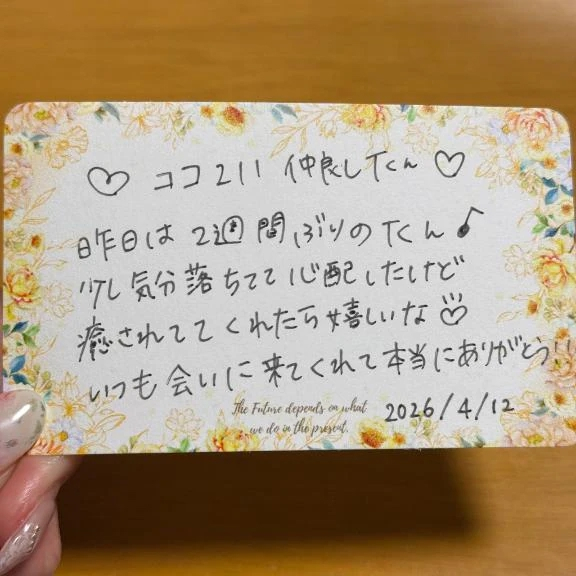 ♡ ココ211 仲良しTくん ♡
昨日は 2週間ぶりのTくん♪
少し気分落ちてて心配したけど
癒されててくれたら嬉しいな♡
いつも会いに来てくれて本当にありがとう!!
The Future depends on what
we do in the present.
2026/4/12